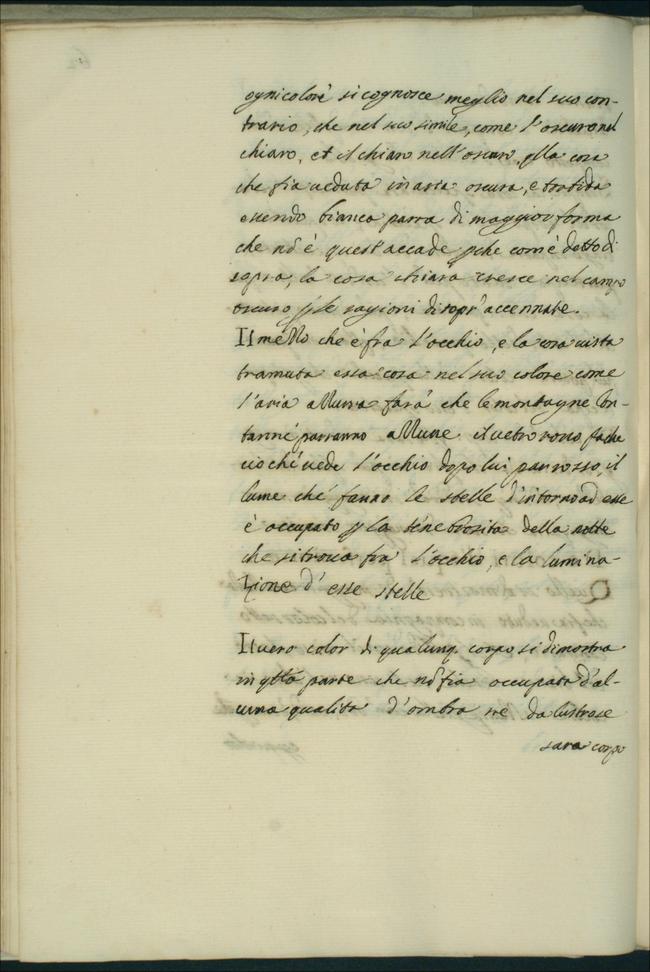 ogni colore si cognosce meglio nel suo con-
trario, che nel suo simile, come l'oscuro nel
chiaro, et il chiaro nell'oscuro, p la cosa
che fia ueduta in aria oscura, e torbida
essendo bianca parra di maggior forma
che nō è quest'accade p che com'è detto di
sopra, la cosa chiara cresce nel campo
oscuro p le ragioni di sopr'accennate.
Il mezzo che è fra l'occhio, e la cosa uista
tramuta essa cosa nel suo colore come
l'aria azzurra farà che le montagne lon-
tanne parranno azzurre il uetro rosso fa che
ciò che uede l'occhio dopo lui par rosso, il
lume che fanno le stelle d'intorno ad esse
è occupato p la tenebrosità della notte
che si troua fra l'occhio, e la lumina-
zione d'esse stelle
Il uero color di qualunq corpo si dimostra
in qlla parte che nō fia occupata d'al-
cuna qualità d'ombra nè da lustro se
sara corpo